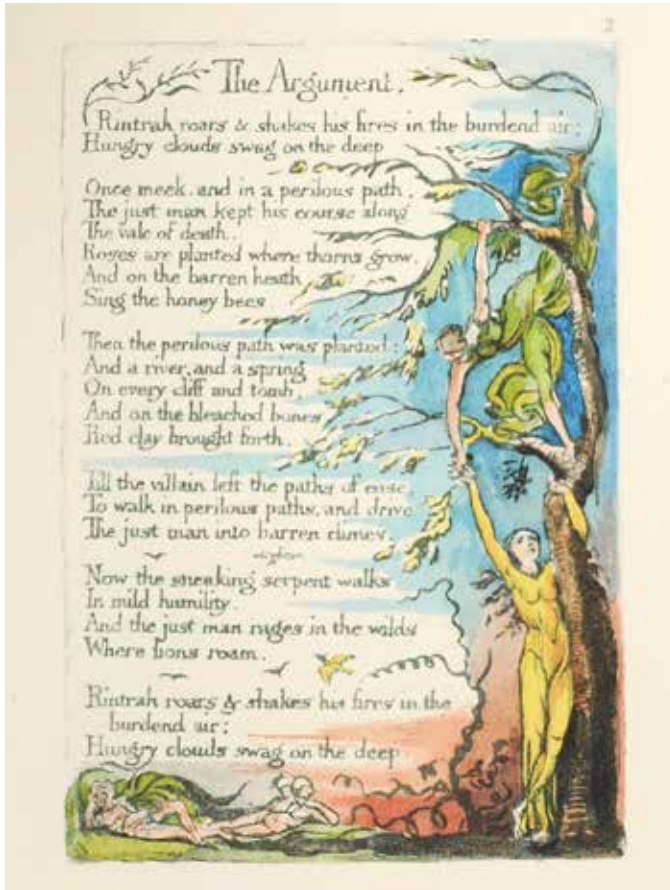 2
The Argument.
Rintrah roars & shakes his fires in the burdend air;
Hungry clouds swag on the deep
Once meek, and in a perilous path,
The just man kept his course along
The vale of death.
Roses are planted where thorns grow,
And on the barren heath
Sing the honey bees
Then the perilous path was planted:
And a river, and a spring
On every cliff and tomb;
And on the bleached bones
Red clay brought forth.
Till the villain left the paths of ease,
To walk in perilous paths, and drive
The just man into barren climes.
Now the sneaking serpent walks
In mild humility.
And the just man rages in the wilds
Where lions roam.
Rintrah roars & shakes his fires in the
burdend air;
Hungry clouds swag on the deep